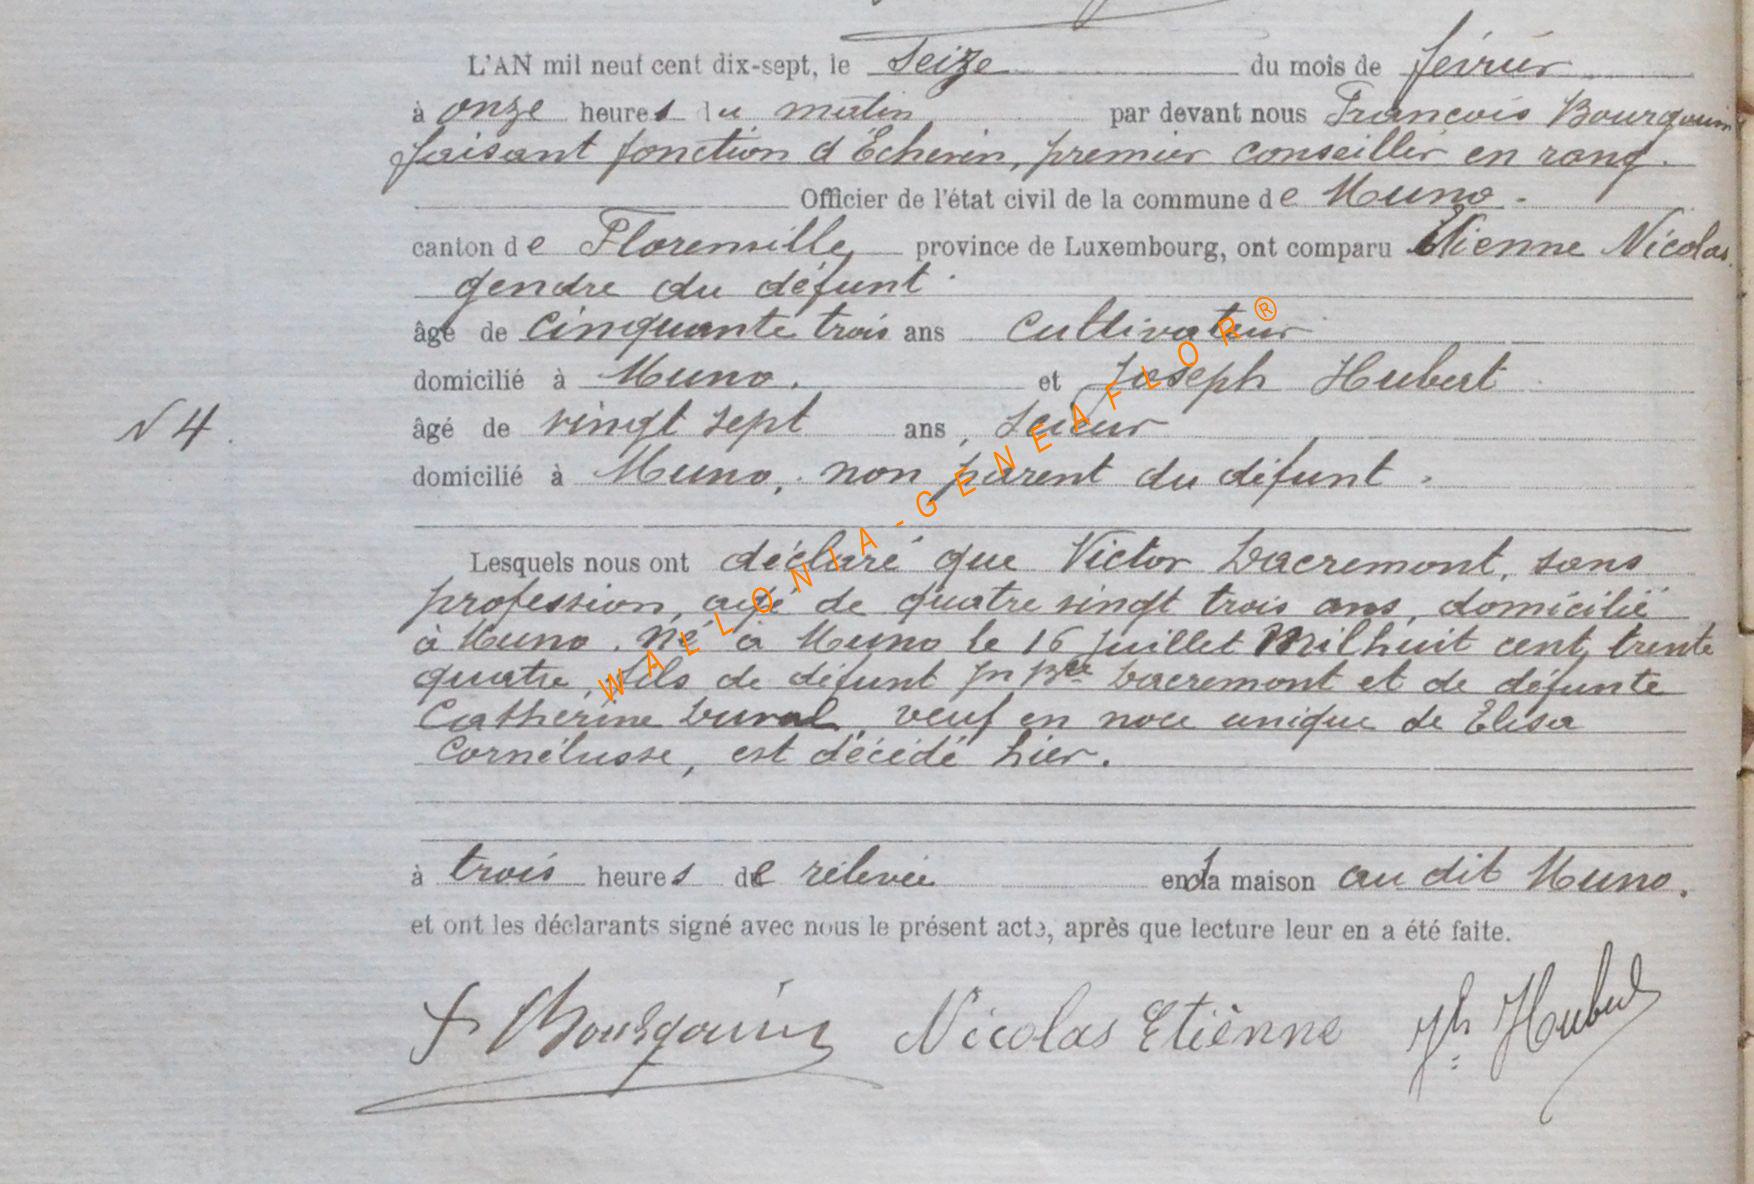 L'AN mil neuf cent dix-sept, le Seize du mois de février
à onze heures du matin par devant nous François Bourgouin
faisant fonction d'Echevin, premier conseiller en rang.
Officier de l'état civil de la commune de Muno.
canton de Florenville province de Luxembourg, ont comparu Etienne Nicolas
gendre du défunt
âgé de cinquante trois ans cultivateur
domicilié à Muno. et Joseph Hubert
N 4.
âgé de vingt sept ans, Scieur
domicilié à Muno, non parent du défunt.
Lesquels nous ont déclaré que Victor Lacremont, sans
profession, agé de quatre vingt trois ans, domicilié
à Muno. Né à Muno le 16 juillet Mil huit cent trente
quatre, fils de défunt Jn Bte Lacremont et de défunte
Catherine Duval, veuf en noce unique de Elisa
Cornélusse, est décédé hier.
à trois heures de rélevée en la maison au dit Muno.
et ont les déclarants signé avec nous le présent acte, après que lecture leur en a été faite.
F Bourgouin Nicolas Etiènne Jh Hubert
WALLONIA-GENEAFLOR®